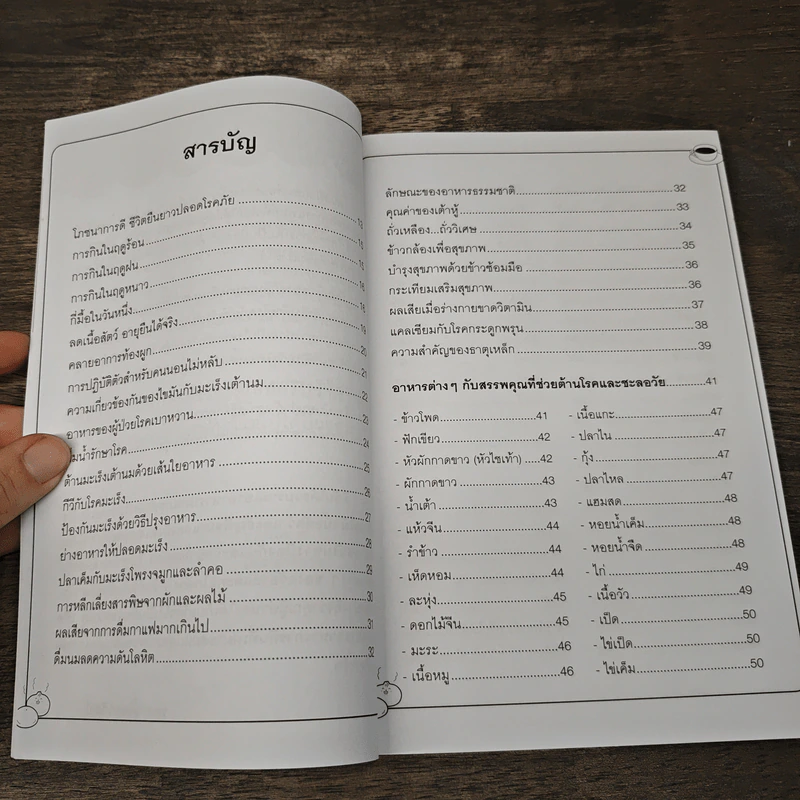 สารบัญ
โภชนาการดี ชีวิตยืนยาวปลอดโรคภัย
การกินในฤดูร้อน
การกินในฤดูฝน
การกินในฤดูหนาว
กี่มื้อในวันหนึ่ง
ลดเนื้อสัตว์ อายุยืนได้จริง
คลายอาการท้องผูก
การปฏิบัติตัวสำหรับคนนอนไม่หลับ
ความเกี่ยวข้องกันของไขมันกับมะเร็งเต้านม
อาหารของผู้ป่วยโรคเบาหวาน
น้ำรักษาโรค
ต้านมะเร็งเต้านมด้วยเส้นใยอาหาร
กีวีกับโรคมะเร็ง
ป้องกันมะเร็งด้วยวิธีปรุงอาหาร
ย่างอาหารให้ปลอดมะเร็ง
ปลาเค็มกับมะเร็งโพรงจมูกและลำคอ
การหลีกเลี่ยงสารพิษจากผักและผลไม้
ผลเสียจากการดื่มกาแฟมากเกินไป
ดื่มนมลดความดันโลหิต
ลักษณะของอาหารธรรมชาติ 32
คุณค่าของเต้าหู้ 33
ถั่วเหลือง...ถั่ววิเศษ 34
ข้าวกล้องเพื่อสุขภาพ 35
บำรุงสุขภาพด้วยข้าวซ้อมมือ 36
กระเทียมเสริมสุขภาพ 36
ผลเสียเมื่อร่างกายขาดวิตามิน 37
แคลเซียมกับโรคกระดูกพรุน 38
ความสำคัญของธาตุเหล็ก 39
อาหารต่างๆ กับสรรพคุณที่ช่วยต้านโรคและชะลอวัย 41
- ข้าวโพด 41
- ฟักเขียว 42
- หัวผักกาดขาว (หัวไชเท้า) 42
- ผักกาดขาว 43
- น้ำเต้า 43
- แห้วจีน 44
- รำข้าว 44
- เห็ดหอม 44
- ละหุ่ง 45
- ดอกไม้จีน 45
- มะระ 46
- เนื้อหมู 46
- เนื้อแกะ 47
- ปลาไน 47
- กุ้ง 47
- ปลาไหล 47
- แฮมสด 48
- หอยน้ำเค็ม 48
- หอยน้ำจืด 48
- ไก่ 49
- เนื้อวัว 49
- เป็ด 50
- ไข่เป็ด 50
- ไข่เค็ม 50